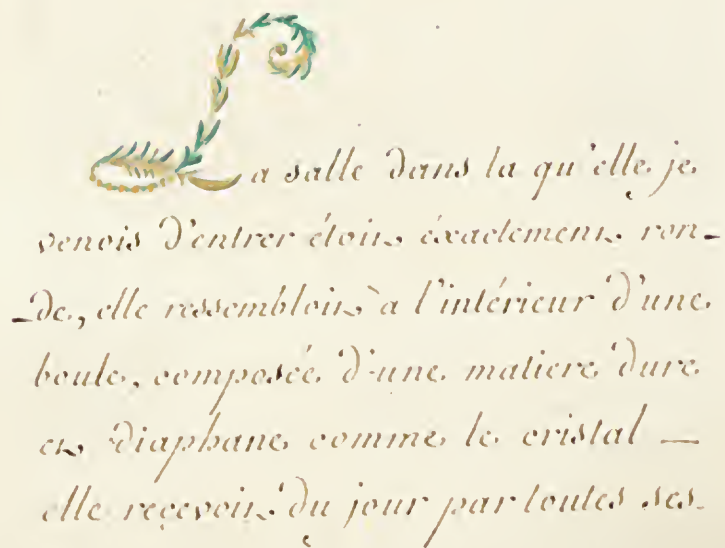 La salle dans la qu'elle je
venois d'entrer étoit éxactement ron-
-de, elle ressembloit à l'intérieur d'une
boule, composée d'une matiere dure
et diaphane comme le cristal —
elle reçevoit du jour par toutes ses